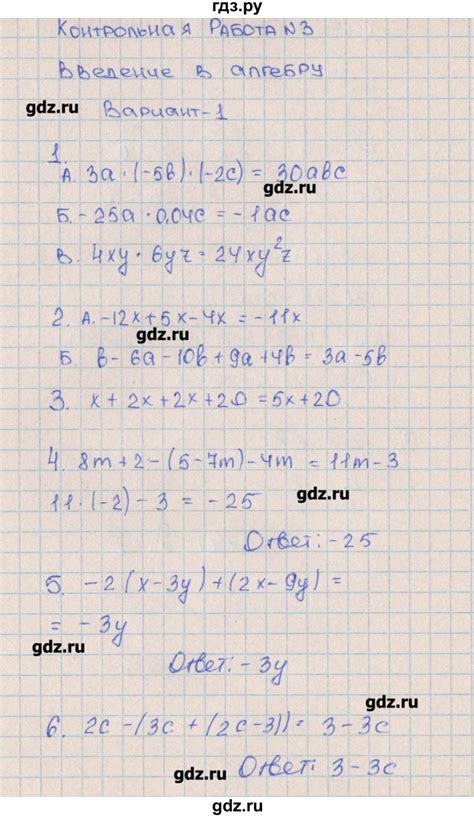 гдз.ру
Контрольная Работа N3
Введение в алгебру
gdz.ru
Вариант-1
1.
А. 3a · (-5b) · (-2c) = 30abc
gdz.ru
Б. -25a · 0,04c = -1ac
В. 4xy · 6yz = 24xy²z
2. А. -12x + 5x - 4x = -11x
gdz.ru
Б. b - 6a - 10b + 9a + 4b = 3a - 5b
3. x + 2x + 2x + 20 = 5x + 20
4. 8m + 2 - (5 - 7m) - 4m = 11m - 3
11 · (-2) - 3 = -25
gdz.ru
Ответ: -25
5. -2(x - 3y) + (2x - 9y) =
= -3y
gdz.ru
Ответ: -3y
gdz.ru
6. 2c - (3c + (2c - 3)) = 3 - 3c
gdz.ru
Ответ: 3 - 3c
gdz.ru